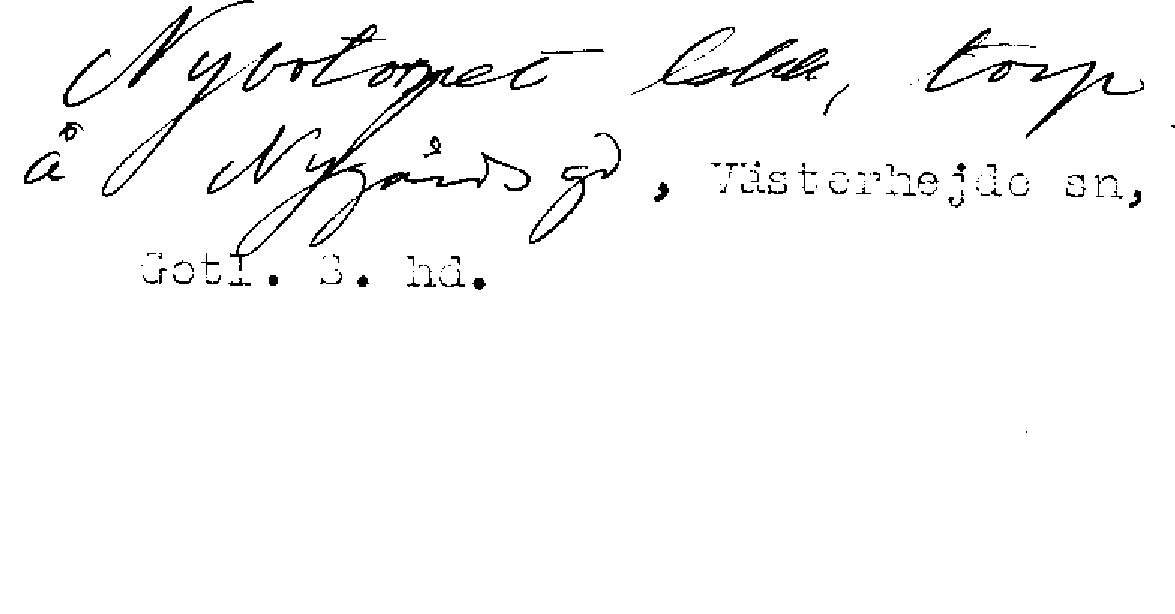 Nybotorpet lht, torp
å Nygårds gd, Västerhejde sn,
Gotl. S. hd.